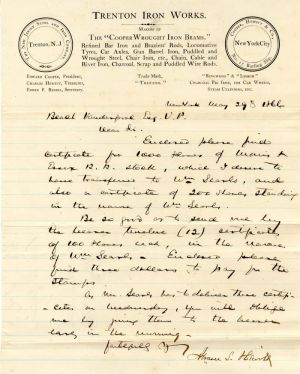 TRENTON IRON WORKS.
MAKERS OF
THE "COOPER WROUGHT IRON BEAMS."
Refined Bar Iron and Braziers' Rods, Locomotive
Tyres, Car Axles, Gun Barrel Iron, Puddled and
Wrought Steel, Chair Iron, etc., Chain, Cable and
Rivet Iron, Charcoal, Scrap and Puddled Wire Rods.
Trenton, N.J.
New York City
EDWARD COOPER, President,
CHARLES HEWITT, Treasurer,
Trade Mark,
"TRENTON."
"RINGWOOD" &
Charcoal Pig Iron, for Car Wheels,
Steam Cylinders, etc.
New York May 29th
Esq V.P.
Dear Sir.
Enclosed please find
Certificate for 1000 Shares of Morris &
Essex R.R. Stock, which I desire to
have transferred to Wm Searls, and
also a certificate of 200 Shares standing
in the name of Wm Searls.
Be so good as to send me by
the bearer twelve (12) certificates
of 100 Shares each, in the name
of Wm Searls. Enclosed please
find three dollars to pay for the
Stamps.
As Mr. Searls has to deliver these certifi-
cates on Wednesday, you will oblige
me by giving them to the bearer
early in the morning.
Abram S. Hewitt